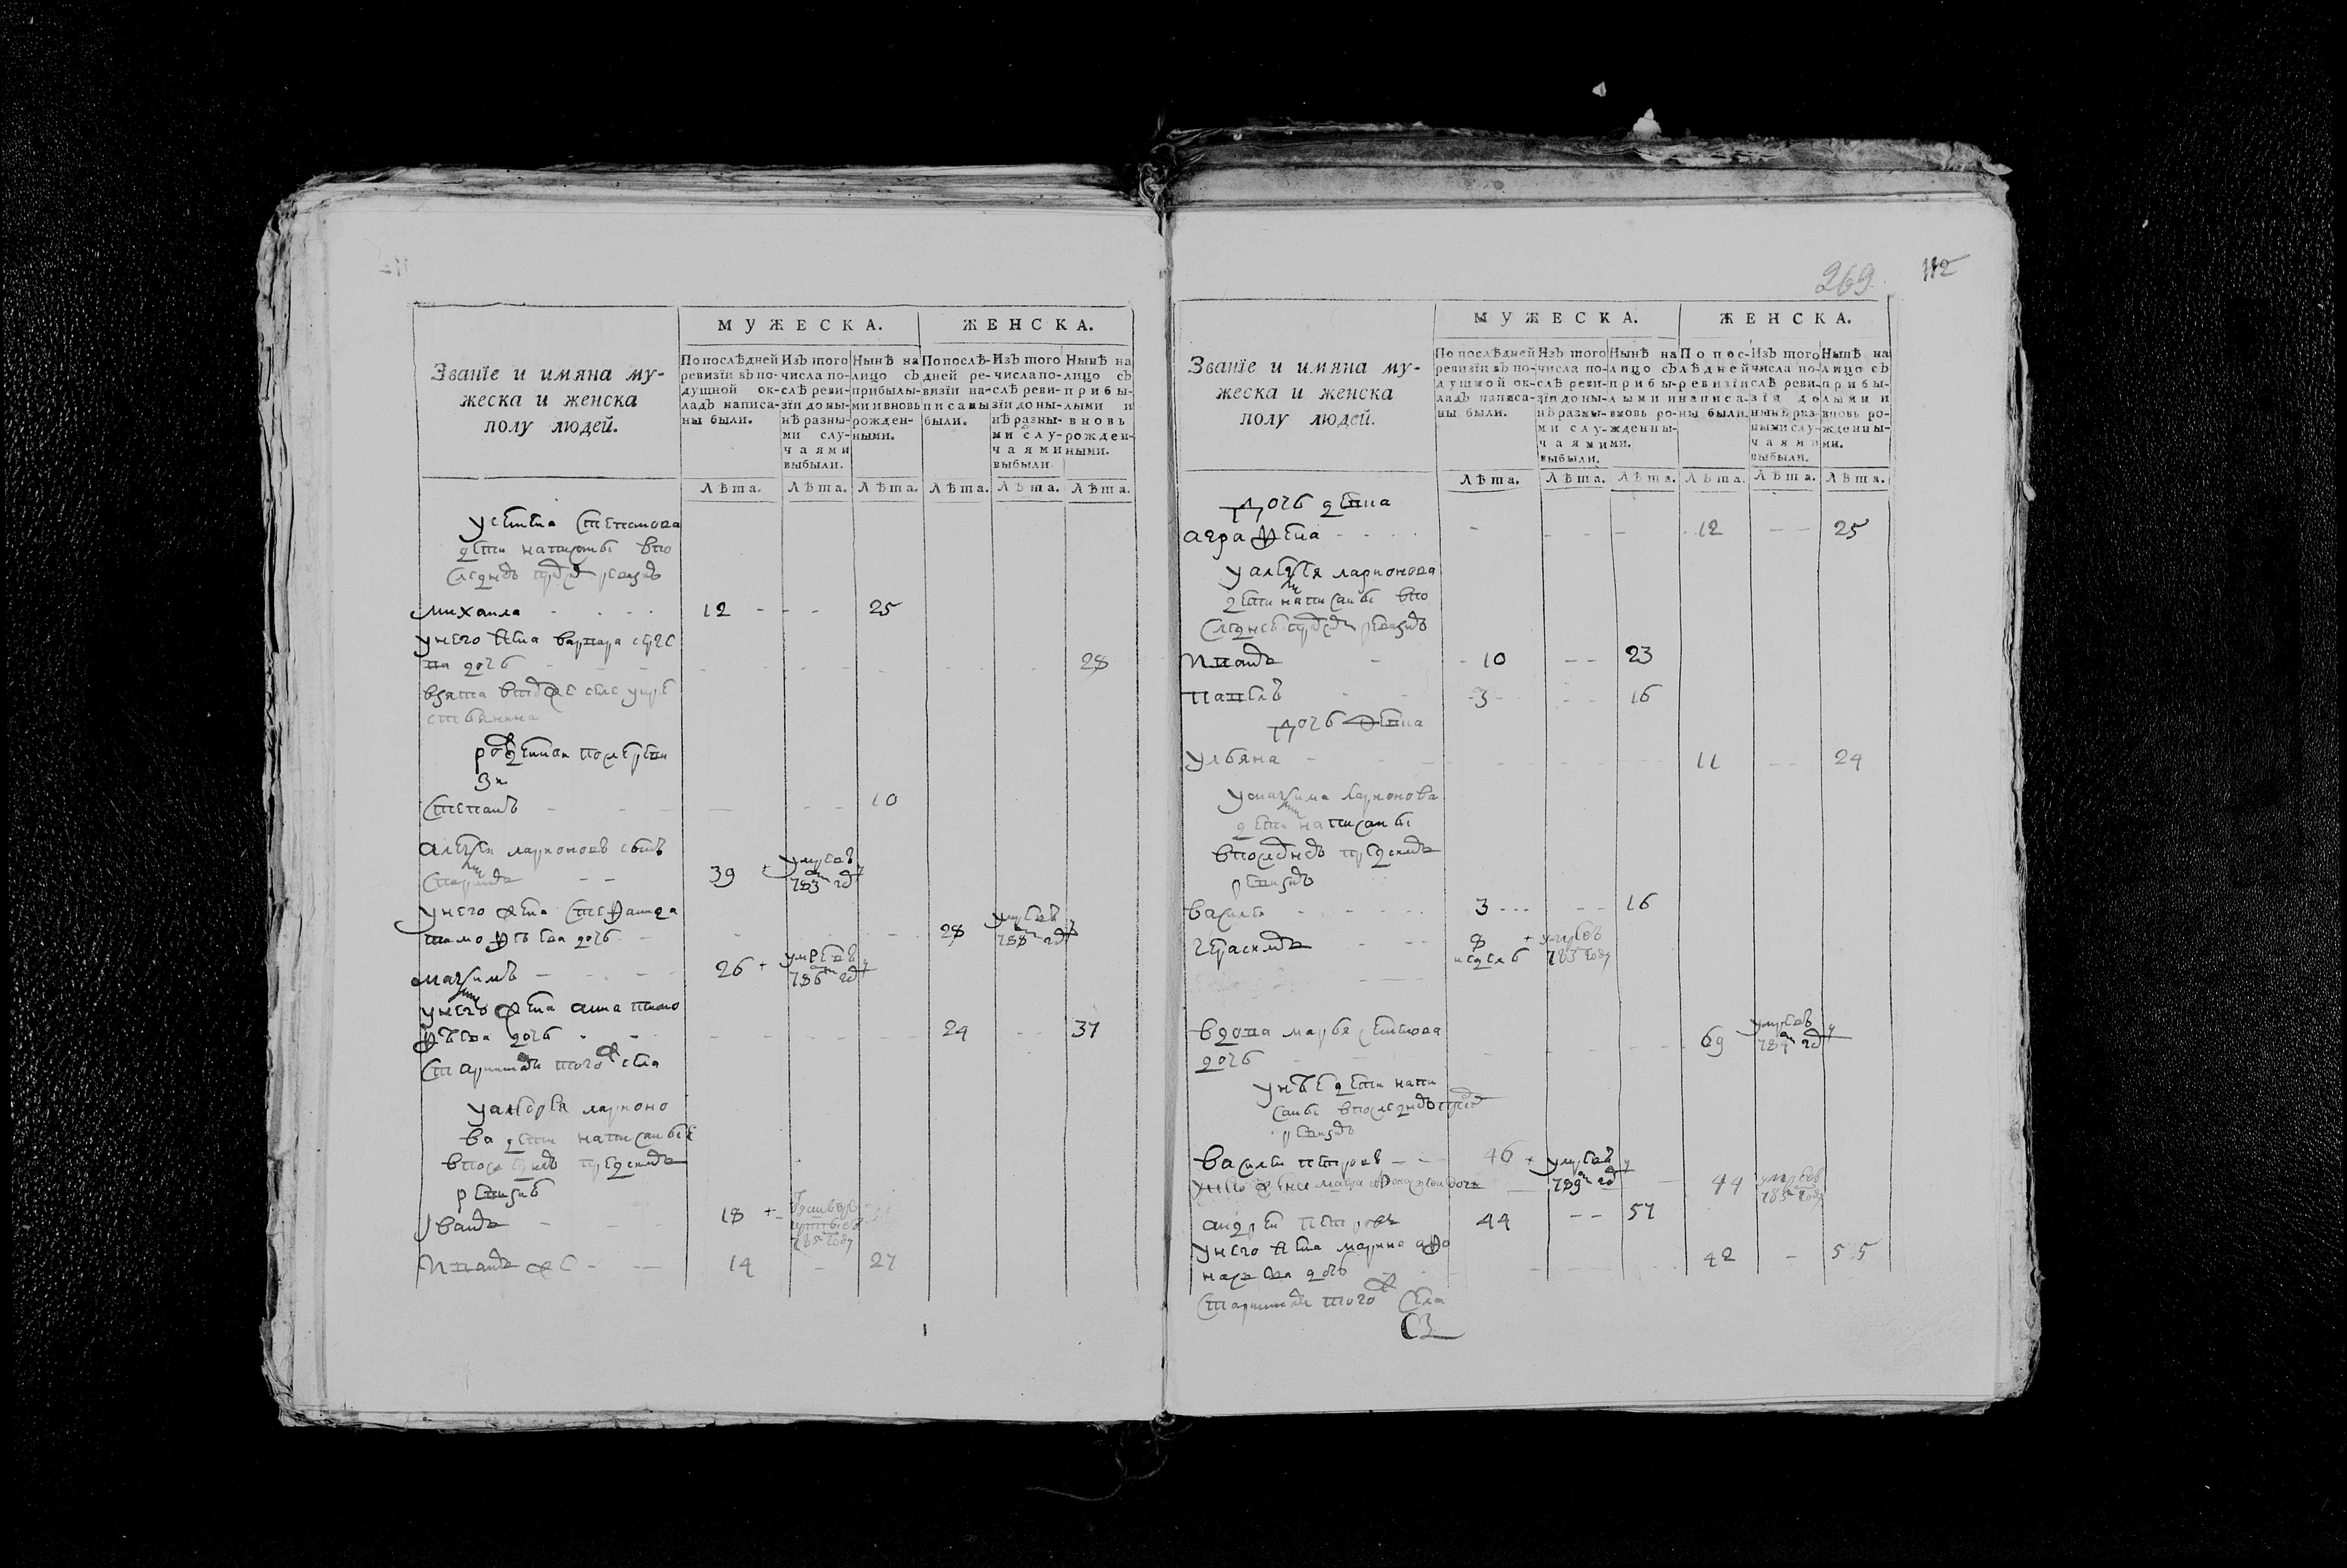 Званїе и имяна му-
жеска и женска
полу людей.
МУЖЕСКА.
ЖЕНСКА.
По послѣдней
ревизїи въ по-
душной ок-
ладъ написа-
ны были.
Изъ того
числа по-
слѣ реви-
зїи до ны-
нѣ разны-
ми слу-
чаями
выбыли.
Нынѣ на
лицо съ
прибылы-
ми и вновь
рожден-
ными.
По послѣ-
дней ре-
визїи на-
писаны
были.
Изъ того
числа по-
слѣ реви-
зїи до ны-
нѣ разны-
ми слу-
чаями
выбыли.
Нынѣ на
лицо съ
прибы-
лыми и
вновь
рожден-
ными.
Лѣта. Лѣта. Лѣта. Лѣта. Лѣта. Лѣта.
устина степанова
дети написаны впо
следнеъ ревизиъ
михаила 12 25
унего жена варвара серге
ва дочь 28
взята
рожденои после реви
зи
степанъ 10
алексеи ларионовъ сынъ
39 умре въ
783 году
унего жена стефанида
тимофеева дочь 28 умре въ
788 году
максимъ 26 умре въ
786 году
унего жена анна тимо
феева дочь 24 37
того ж села
уандрея ларионо
ва дети написаные
впоследнеъ
ревизиъ
Иванъ 18
785 году
Иванъ же 14 27
269
112
Званїе и имяна му-
жеска и женска
полу людей.
МУЖЕСКА.
ЖЕНСКА.
По послѣдней
ревизїи въ по-
душной ок-
ладъ написа-
ны были.
Изъ того
числа по-
слѣ реви-
зїи до ны-
нѣ разны-
ми слу-
чаями
выбыли.
Нынѣ на
лицо съ
прибы-
лыми и
вновь ро-
жденны-
ми.
По пос-
лѣдней
ревизїи
написа-
ны были.
Изъ того
числа по-
слѣ реви-
зїя до
нынѣ раз-
ными слу-
чаями
выбыли.
Нынѣ на
лицо съ
прибы-
лыми и
вновь ро-
жденны-
ми.
Лѣта. Лѣта. Лѣта. Лѣта. Лѣта. Лѣта.
дочь девка
аграфена 12 25
уалексея ларионова
дети написаны впо
следнеъ ревизиъ
Иванъ 10 23
павелъ 3 16
дочь девка
ульяна 11 24
умаксима ларионова
дети написаны
впоследнеъ
ревизиъ
василеи 3 16
герасимъ 8 умре въ
недель 785 году
вдова марья
дочь 69 умре въ
784 году
унее дети напи
саны впоследнеъ
ревизиъ
василеи петровъ 46 умре въ
789 году
унего жена дочь 44 умре въ
785 году
андреи петровъ 44 57
унего жена марина афо
насьева дочь 42 55
того ж села